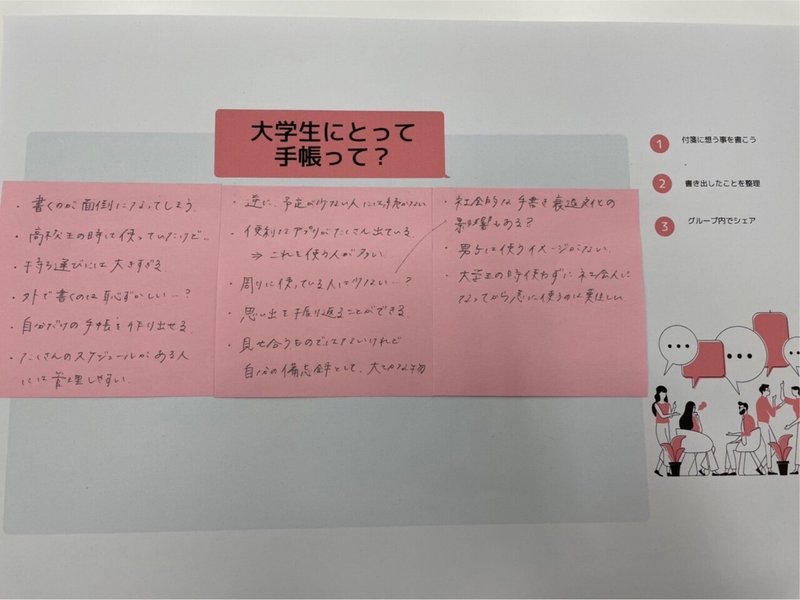 大学生にとって
手帳って？
1 付箋に想う事を書こう
2 書き出したことを整理
3 グループ内でシェア
・書くのが面倒になってしまう
・高校生の時は使っていたけど…
・持ち運びには大きすぎる
・外で書くのは恥ずかしい…？
・自分だけの手帳を作り出せる
・たくさんのスケジュールがある人
には管理しやすい
・逆に、予定が少ない人には
・便利なアプリがたくさん出ている
⇒これを使う人が多い
・周りに使っている人は少ない…？
・思い出を振り返ることができる
・見せ合うものではないけれど
自分の備忘録として、大切な物
・社会的な手書き衰退文化の
影響もある？
・男子は使うイメージがない
・大学生の時使わずに社会人に
なってから急に使うのは難しい